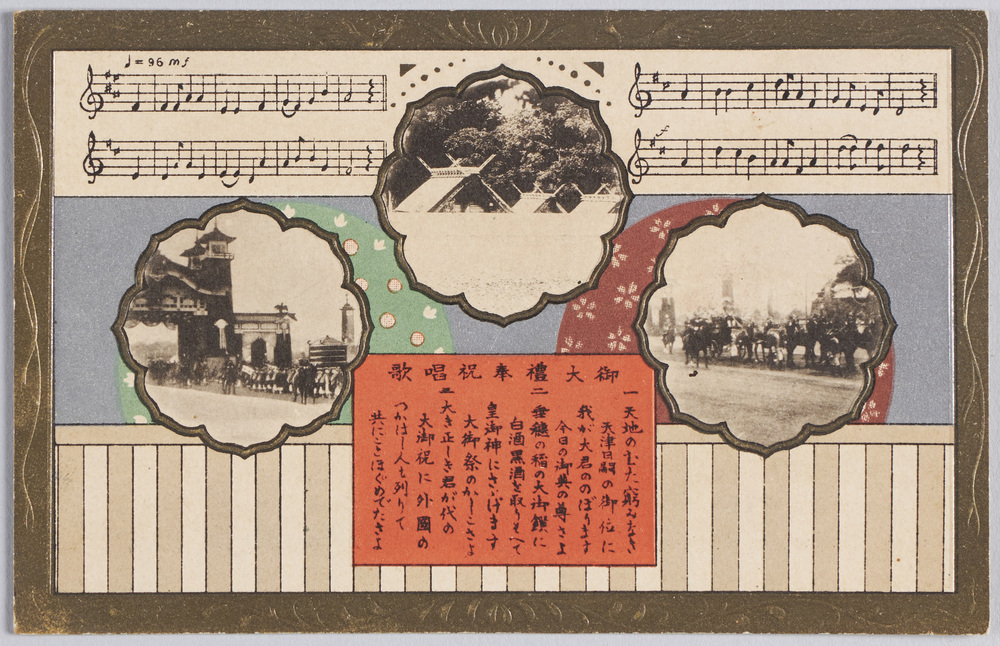 ♩=96 mf
f
御大禮奉祝唱歌
一 天地のむた窮みなき
天津日嗣の御位に
我が大君ののぼります
今日の御典の尊さよ
二 垂穗の稲の大御饌に
白酒黒酒を取りそへて
皇御神にさゝげます
大御祭のかしこさよ
三 大き正しき君が代の
大御祝に外國の
つかはし人も列りて
共にことほぐめでたさよ